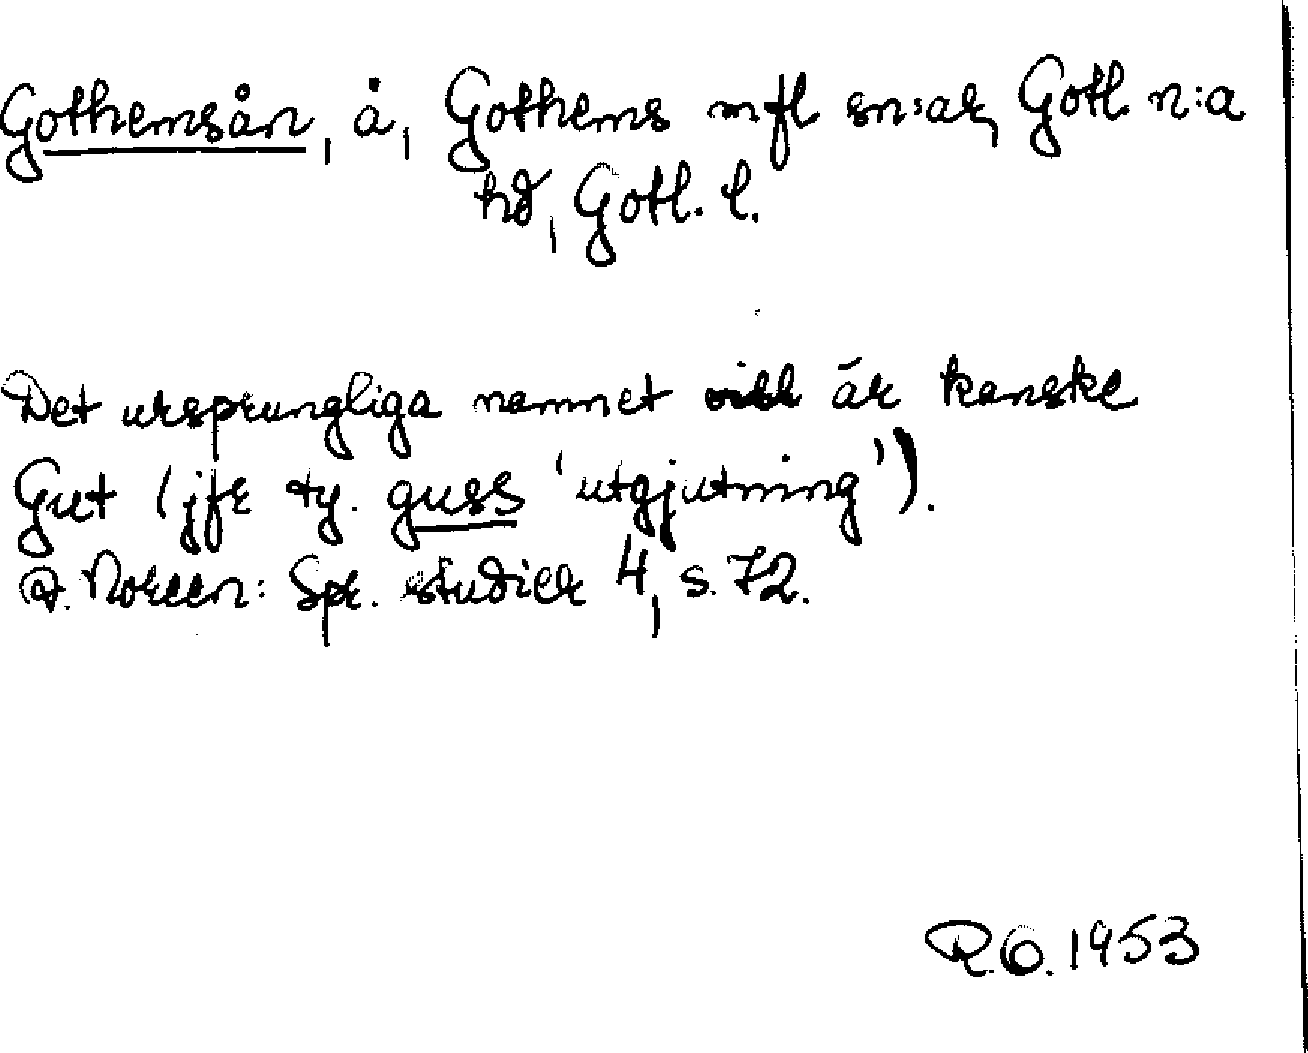 Gothemsån, å, Gothems mfl sn:ar, Gotl. n:a
hd, Gotl. l.
Det ursprungliga namnet är kanske
Gut (jfr ty. guss 'utgjutning').
A. Noreen: Spr. studier 4, s. 72.
R.O. 1953